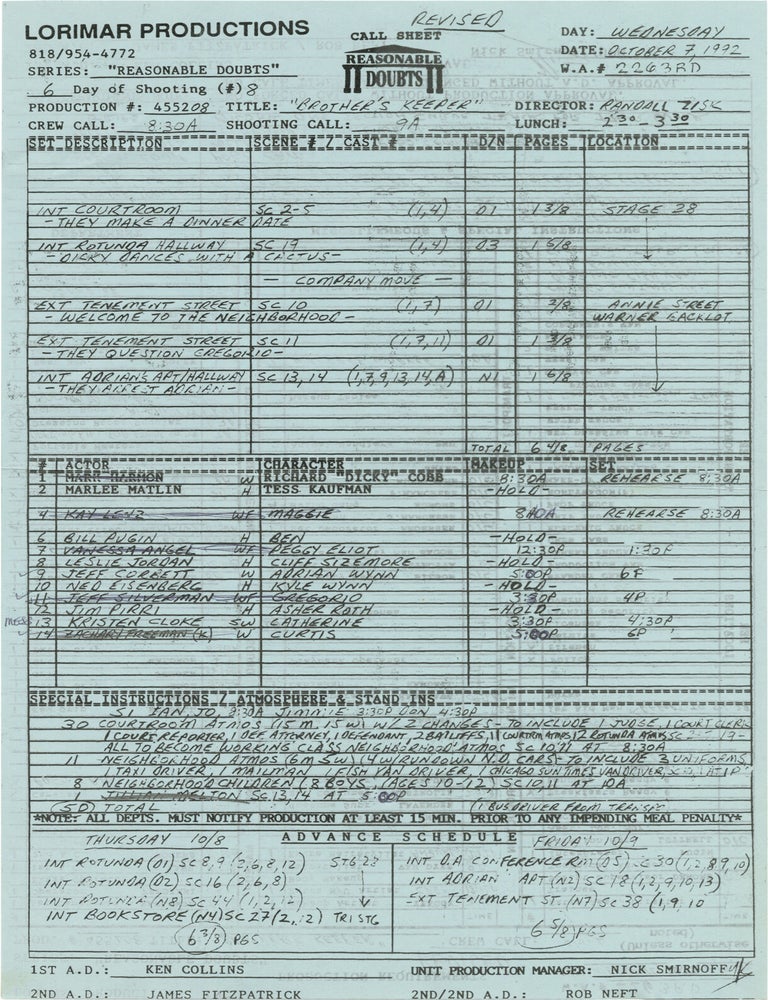 REVISED
LORIMAR PRODUCTIONS CALL SHEET DAY: WEDNESDAY
818/954-4772 REASONABLE DOUBTS DATE: OCTOBER 7, 1992
SERIES: "REASONABLE DOUBTS" W.A.# 2263RD
6 Day of Shooting (#) 8
PRODUCTION #: 455208 TITLE: "BROTHER'S KEEPER" DIRECTOR: RANDALL ZISK
CREW CALL: 8:30A SHOOTING CALL: 9A LUNCH: 230 - 330
SET DESCRIPTION SCENE # / CAST # D/N PAGES LOCATION
INT COURTROOM SC 2-5 (1,4) D1 1 3/8 STAGE 28
- THEY MAKE A DINNER DATE
INT ROTUNDA HALLWAY SC 19 (1,4) D3 1 6/8
- DICKY DANCES WITH A CACTUS -
— COMPANY MOVE —
EXT TENEMENT STREET SC 10 (1,7) D1 2/8 ANNIE STREET
- WELCOME TO THE NEIGHBORHOOD - WARNER BACKLOT
EXT TENEMENT STREET SC 11 (1,7,11) D1 1 3/8
- THEY QUESTION GREGORIO -
INT ADRIANS APT/HALLWAY SC 13, 14 (1,7,9,13,14,A) N1 1 6/8
- THEY ARREST ADRIAN -
TOTAL 6 4/8 PAGES
# ACTOR CHARACTER MAKEUP SET
1 MARK HARMON W RICHARD "DICKY" COBB 8:30A REHEARSE 8:30A
2 MARLEE MATLIN H TESS KAUFMAN -HOLD-
4 KAY LENZ WF MAGGIE 8A REHEARSE 8:30A
6 BILL PUGIN H BEN -HOLD-
7 VANESSA ANGEL WF PEGGY ELIOT 12:30P 1:30P
8 LESLIE JORDAN H CLIFF SIZEMORE -HOLD-
9 JEFF CORBETT W ADRIAN WYNN 5:00P 6P
10 NED EISENBERG H KYLE WYNN -HOLD-
11 JEFF SILVERMAN WF GREGORIO 3:30P 4P
12 JIM PIRRI H ASHER ROTH -HOLD-
13 KRISTEN CLOKE SW CATHERINE 3:30P 4:30P
14 ZACHARY FREEMAN (K) W CURTIS 5:00P 6P
SPECIAL INSTRUCTIONS / ATMOSPHERE & STAND INS
SI IAN, JO 8:30A JIMMIE 3:30P DON 4:30P
30 COURTROOM ATMOS (15 m. 15 w) W/ 2 CHANGES - TO INCLUDE 1 JUDGE, 1 COURT CLERK
1 COURT REPORTER, 1 DEF. ATTORNEY, 1 DEFENDANT, 2 BAILIFFS, 11 COURTRM ATMOS, 12 ROTUNDA ATMOS
ALL TO BECOME WORKING CLASS NEIGHBORHOOD ATMOS SC 10,11 AT 8:30A
11 NEIGHBORHOOD ATMOS (6m 5w) (4 W/RUNDOWN N.D. CARS - TO INCLUDE 3 UNIFORMS,
1 TAXI DRIVER, 1 MAILMAN, 1 FISH VAN DRIVER, 1 CHICAGO SUN TIMES VAN DRIVER, AT 1P
8 NEIGHBORHOOD CHILDREN (8 BOYS, AGES 10-12) SC 10,11 AT 10A
MELTON SC 13, 14 AT 5:00P
(50) TOTAL (1 BUS DRIVER FROM TRANSPO
*NOTE: ALL DEPTS. MUST NOTIFY PRODUCTION AT LEAST 15 MIN. PRIOR TO ANY IMPENDING MEAL PENALTY*
ADVANCE SCHEDULE
THURSDAY 10/8 FRIDAY 10/9
INT ROTUNDA (D1) SC 8,9 (2,6,8,12) STG 28 INT D.A. CONFERENCE RM (D5) SC 30 (1,2,8,9,10)
INT ROTUNDA (D2) SC 16 (2,6,8) INT ADRIAN APT (N2) SC 18 (1,2,9,10,13)
INT ROTUNDA (N8) SC 44 (1,2,12) EXT TENEMENT ST. (N7) SC 38 (1,9,10
INT BOOKSTORE (N4) SC 27 (2,12) TRI STG
6 3/8 PGS 6 5/8 PGS
1ST A.D.: KEN COLLINS UNIT PRODUCTION MANAGER: NICK SMIRNOFF
2ND A.D.: JAMES FITZPATRICK 2ND/2ND A.D.: ROB NEFT